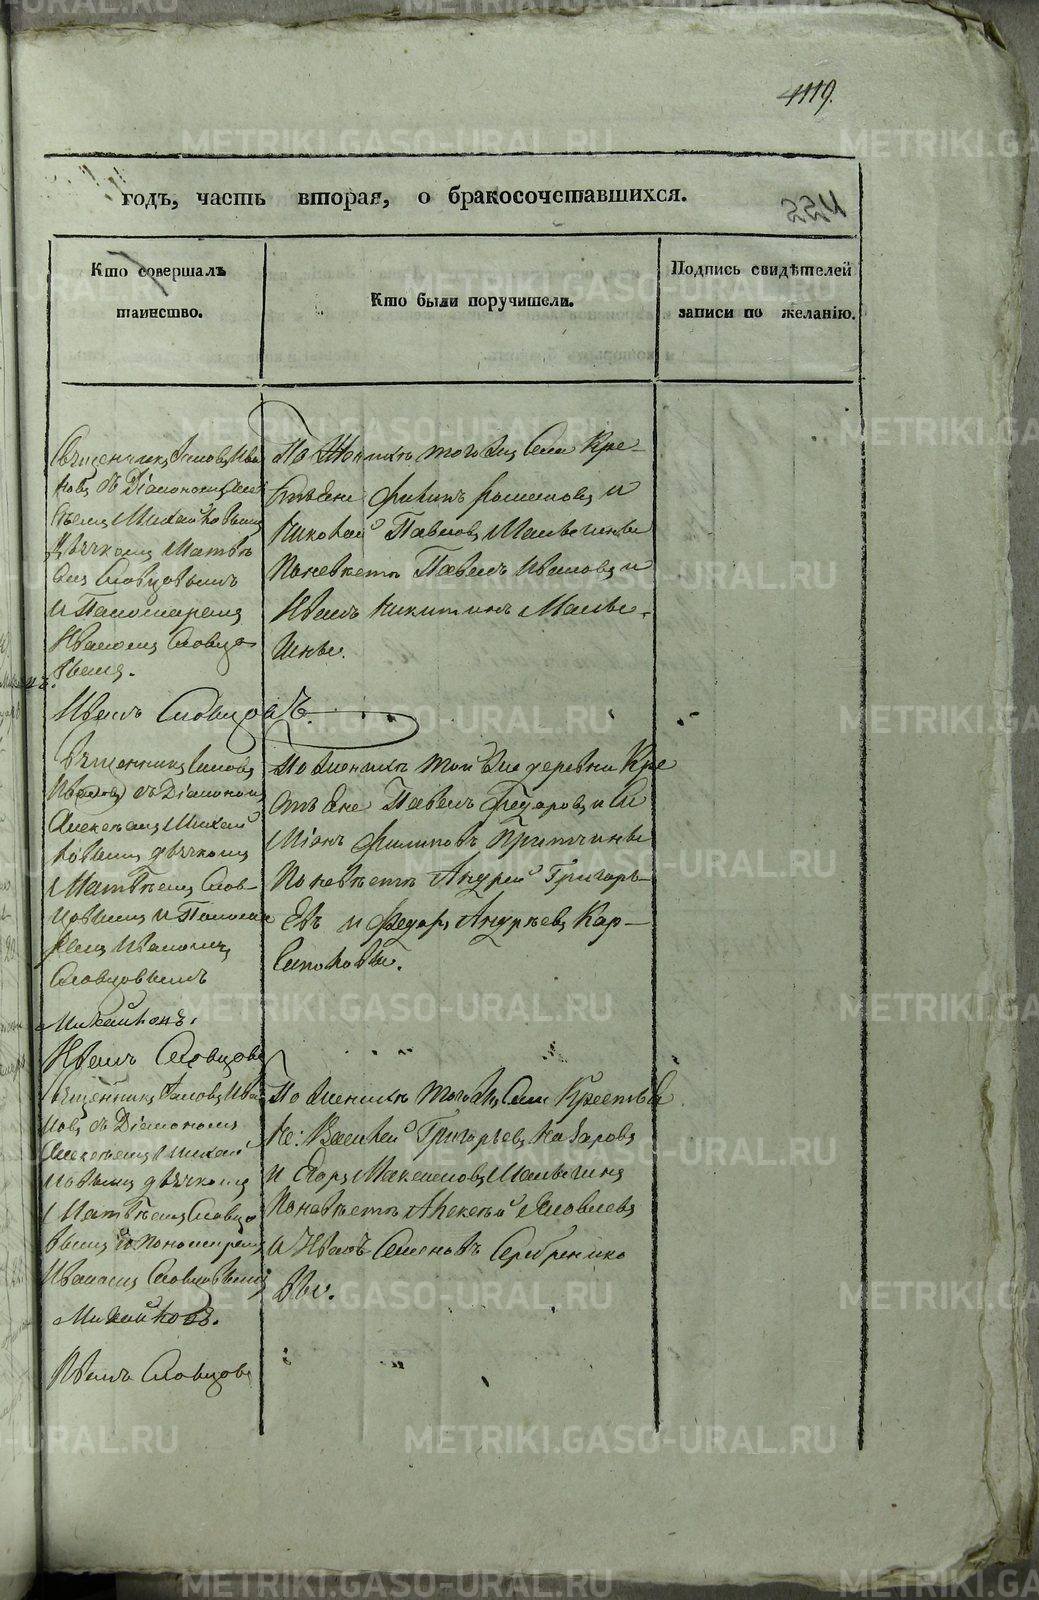 1119.
годъ, часть вторая, о бракосочетавшихся.
Кто совершалъ
таинство.
Кто были поручители.
Подпись свидѣтелей
записи по желанію.
Священникъ Іаковъ Ива
новъ съ Діакономъ Але
ксѣемъ Михайловымъ
Дьячкомъ Матвѣ
емъ Словцовымъ
и Пономаремъ
Иваномъ Словцо
вымъ.
Иванъ Словцовъ.
По Женихѣ того же Села Кре-
стьяне Филипъ
Николай Павловъ Мальгины
По невѣстѣ Павелъ Ивановъ и
Иванъ Никитинъ Мальг-
ины.
Священникъ Іаковъ
Ивановъ съ Діакономъ
Алексѣемъ Михай
ловымъ дьячкомъ
Матвѣемъ Слов-
цовымъ и Понома
ремъ Иваномъ
Словцовымъ
Михайловъ.
Иванъ Словцовъ
По женихѣ той же деревни Кре
стьяне Павелъ Федоровъ и
Филиповъ
По невѣстѣ Андрей Григорь-
евъ и Федоръ Андрѣевъ Кар-
Священникъ Іаковъ Ива
новъ съ Діакономъ
Алексѣемъ Михай
ловымъ дьячкомъ
Матвѣемъ Словцо
вымъ и Пономаремъ
Иваномъ Словцовымъ
Михайловъ.
Иванъ Словцовъ
По женихѣ того же Села Крестья
не: Василей Григорьевъ Назаровъ
и Егоръ Максимовъ Мальгинъ
По невѣстѣ Алексѣй Яковлевъ
и Иванъ Семеновъ Серебренико
вы.
METRIKI.GASO-URAL.RU